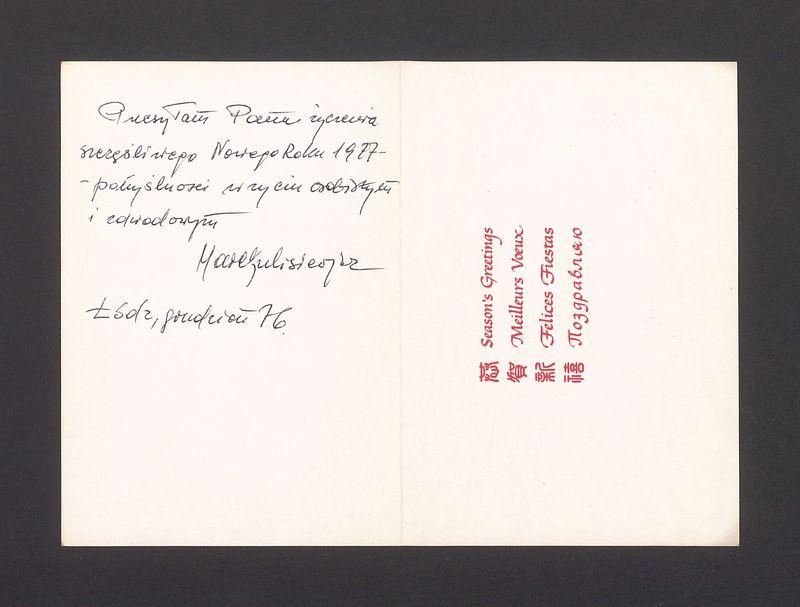 Przesyłam Panu życzenia
szczęśliwego Nowego Roku 1977-
- pomyślności w życiu osobistym
i zawodowym
Łódź, grudzień 76.
Season's Greetings
Meilleurs Vœux
Felices Fiestas
Поздравляю
恭賀新禧